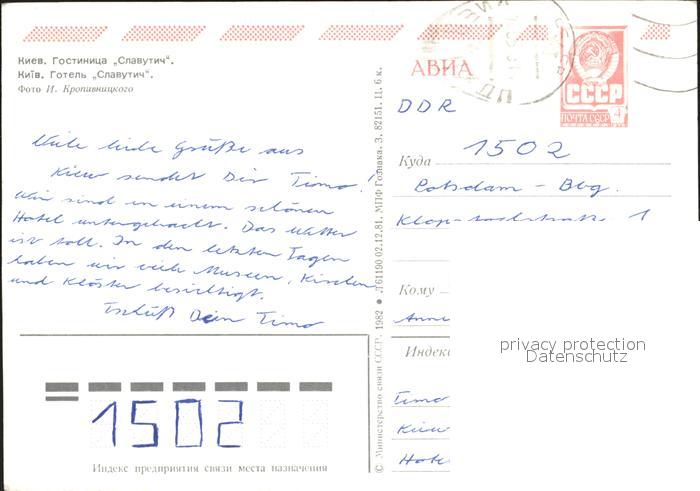 Киев. Гостиница „Славутич".
Київ. Готель „Славутич".
Фото И. Кропивницкого
Viele liebe Grüße aus
Kiew sendet Dir Timo!
Wir sind in einem schönen
Hotel untergebracht. Das Wetter
ist toll. In den letzten Tagen
haben wir viele Museen, Kirchen
und Klöster besichtigt.
Tschüß Dein Timo
1502
Индекс предприятия связи места назначения
© Министерство связи СССР. 1982 ● Л61190 02.12.81. МПФ Гознака. З. 82151. Ц. 6 к.
АВИА
СССР
ПОЧТА СССР
4
DDR
Куда
1502
Potsdam - Bbg.
1
Кому
Индекс
Timo
Kiew
Hotel
privacy protection
Datenschutz